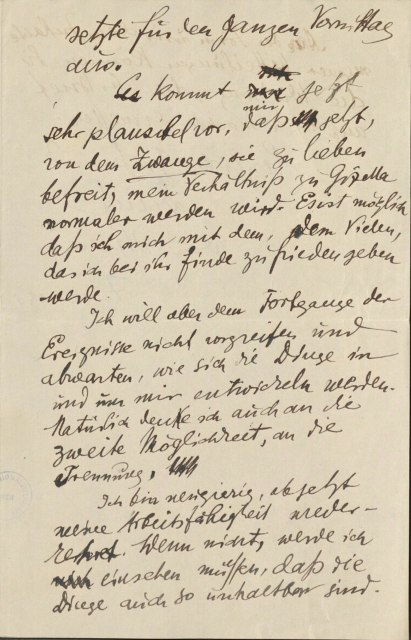 setzte für den ganzen Vormittag
aus.
Es kommt mir jetzt
sehr plausibel vor, daß jetzt,
von dem Zwange, sie zu lieben
befreit, mein Verhältniß zu Gizella
normaler werden wird. Es ist möglich
daß ich mich mit dem, dem Vielen,
das ich bei ihr finde zufrieden geben
werde.
Ich will aber dem Fortgange der
Ereignisse nicht vorgreifen und
abwarten, wie sich die Dinge in
und um mir entwickeln werden.
Natürlich denke ich auch an die
zweite Möglichkeit, an die
Trennung.
Ich bin neugierig, ob jetzt
meine Arbeitsfähigkeit wieder-
kehrt. Wenn nicht, werde ich
einsehen müssen, daß die
Dinge auch so unhaltbar sind.